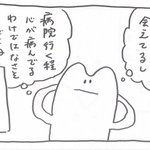 会えてるし
病院行く程
心が病んでる
わけではなさそ